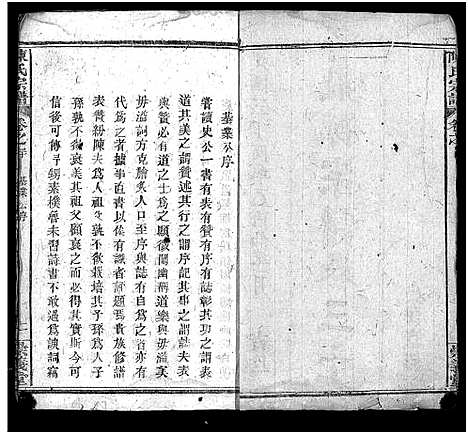 陳氏宗譜
基業公序
嘗讀史公一書有贊有序有誌彰其功之謂
道其美之謂贊述其行之謂序記其事之謂誌夫表
與贊必有道之士爲之顯後闡幽稱道樂與毋溢美
毋溢詞方克膾炙人口至序與誌有自爲之者亦有
代爲之者據事直書以俟有識者評題焉貴族修譜
表贊紛陳夫爲人祖父孰不欲栽培其子孫爲人子
孫孰不欲褒美其祖父顧褒之而得其實斯今可
信後可傳予錫素樸魯未習詩書不敢過爲諛詞竊
陳氏宗譜
卷之首
基業公序
七
義堂